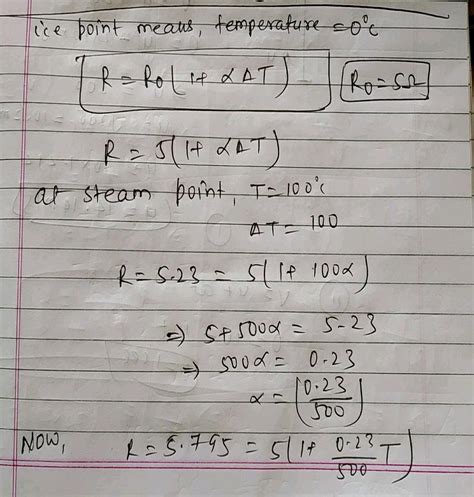 ice point means, temperature = 0°C
R = R0 (1 + α ΔT) R0 = 5Ω
R = 5(1 + α ΔT)
at steam point, T = 100°C
ΔT = 100
R = 5.23 = 5(1 + 100α)
⇒ 5 + 500α = 5.23
⇒ 500α = 0.23
α = (0.23/500)
NOW, R = 5.795 = 5(1 + 0.23/500 T)